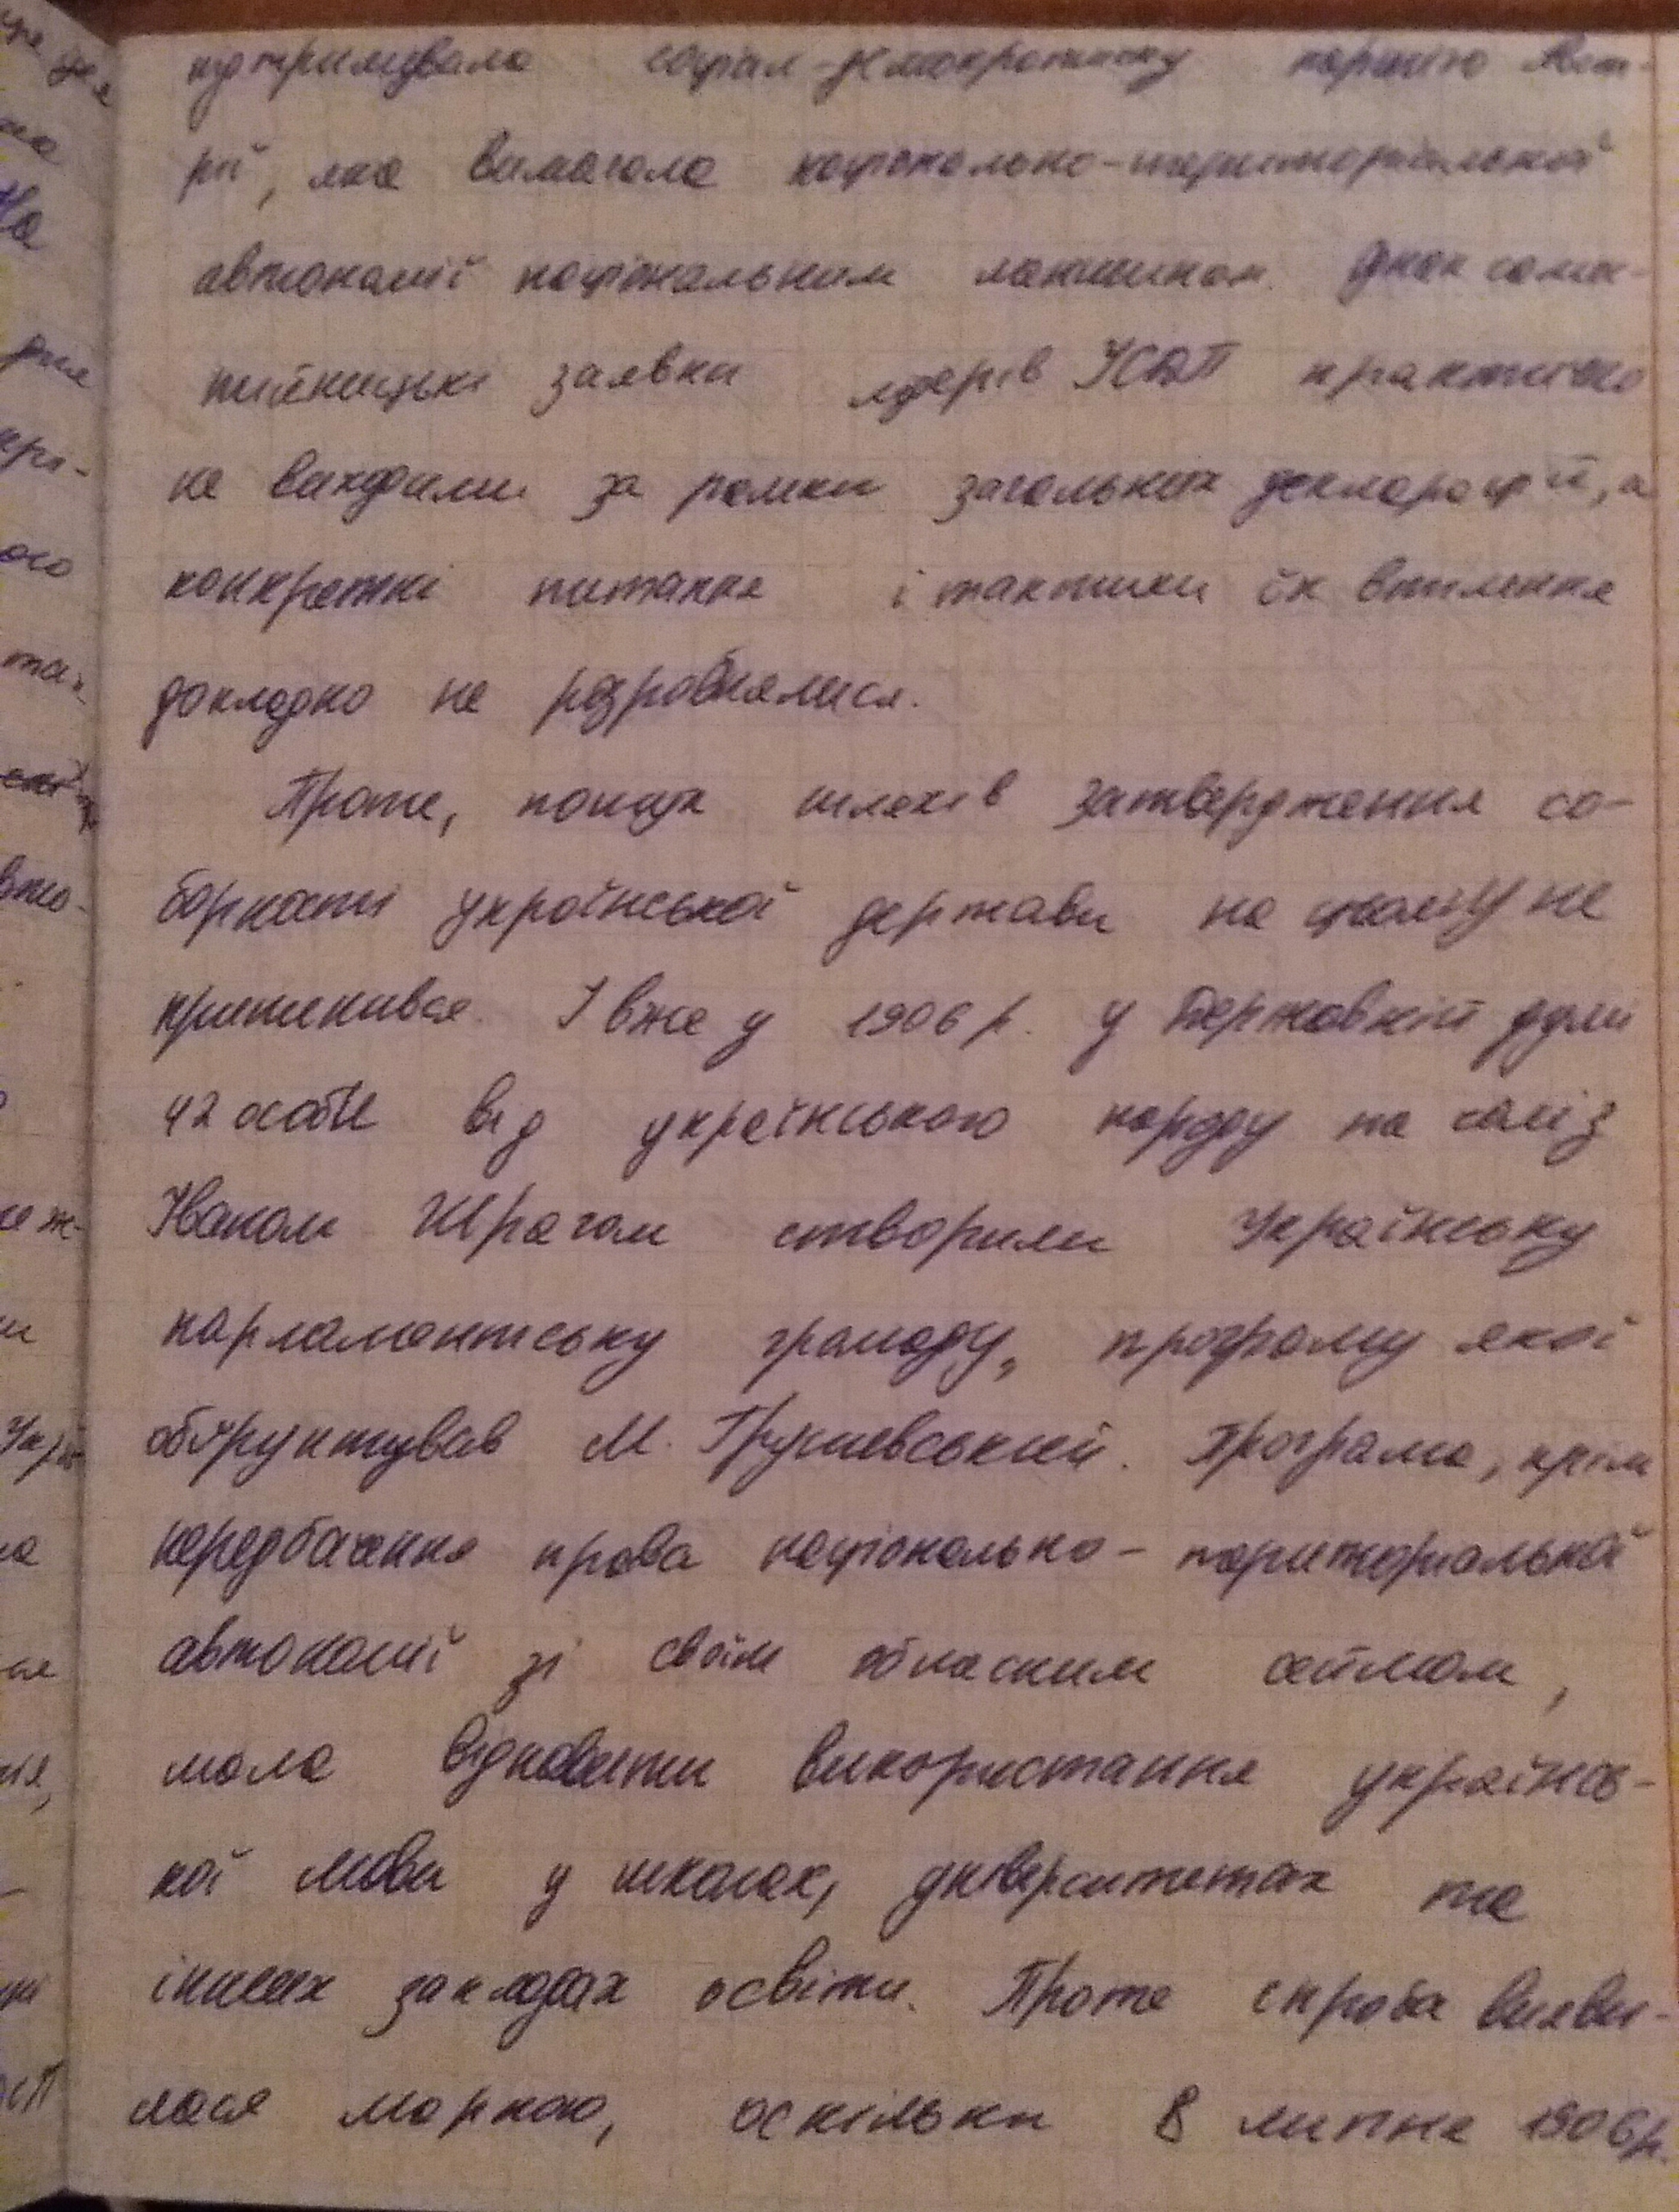 підтримувала соціал-демократичну партію Авст-
рії, яка вимагала національно-територіальної
автономії національним меншинам. Однак самос-
тійницькі заявки лідерів УСДП практично
не виходили за рамки загальних декларацій, а
конкретні питання і тактики їх втілення
докладно не розроблялися.
Проте, пошук шляхів затвердження со-
борності української держави на цьому не
припинився. І вже у 1906 р. у Державній думі
42 особи від українського народу на чолі з
Іваном Шрагом створили Українську
парламентську громаду, програму якої
обґрунтував М. Грушевський. Програма, крім
передбачення права національно-територіальної
автономії зі своїм обласним сеймом,
мала відновити використання українсь-
кої мови у школах, університетах та
інших закладах освіти. Проте спроба вияви-
лася марною, оскільки 8 липня 1906 р.